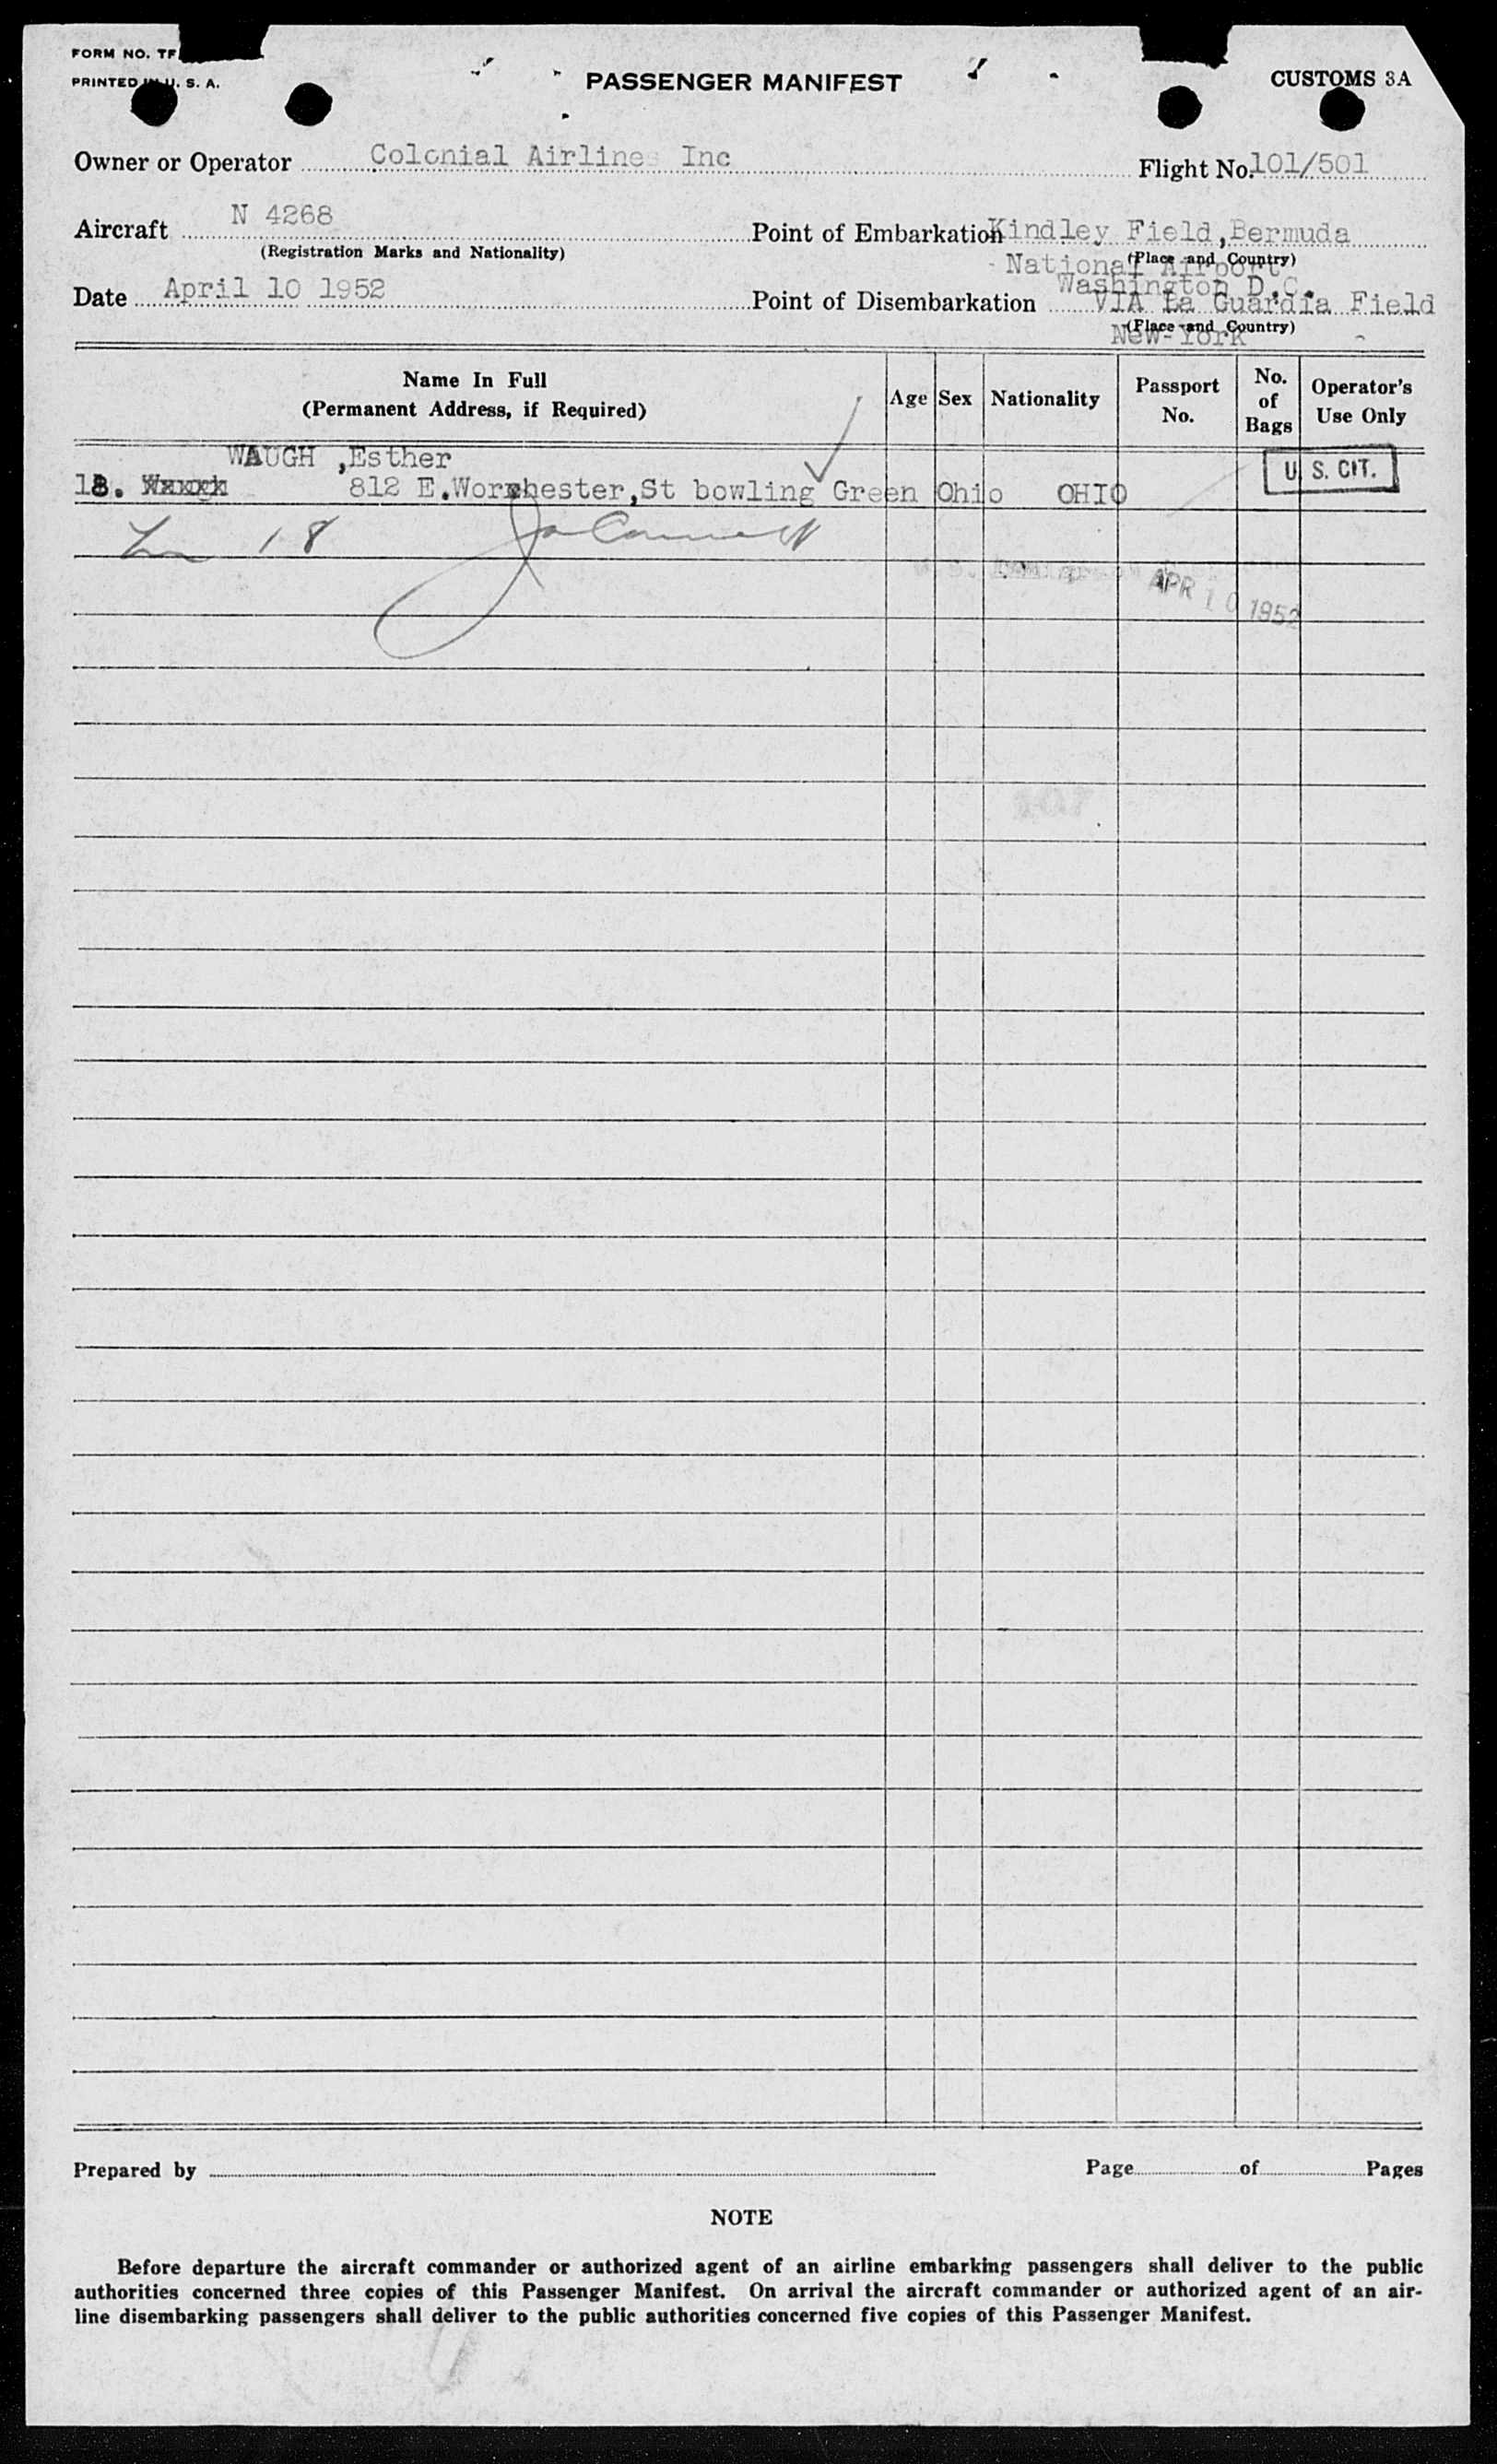 FORM NO. TF
PRINTED IN U. S. A.
PASSENGER MANIFEST
CUSTOMS 3A
Owner or Operator Colonial Airlines Inc
Flight No. 101/501
Aircraft N 4268
(Registration Marks and Nationality)
Point of Embarkation Kindley Field, Bermuda
(Place and Country)
Date April 10 1952
National Airport
Washington D.C.
Point of Disembarkation VIA La Guardia Field
(Place and Country)
New York
Name In Full
(Permanent Address, if Required)
Age
Sex
Nationality
Passport
No.
No.
of
Bags
Operator's
Use Only
WAUGH ,Esther
18. 812 E.Worchester,St bowling Green Ohio OHIO
U. S. CIT.
18
APR 10 1952
Prepared by
Page of Pages
NOTE
Before departure the aircraft commander or authorized agent of an airline embarking passengers shall deliver to the public
authorities concerned three copies of this Passenger Manifest. On arrival the aircraft commander or authorized agent of an air-
line disembarking passengers shall deliver to the public authorities concerned five copies of this Passenger Manifest.